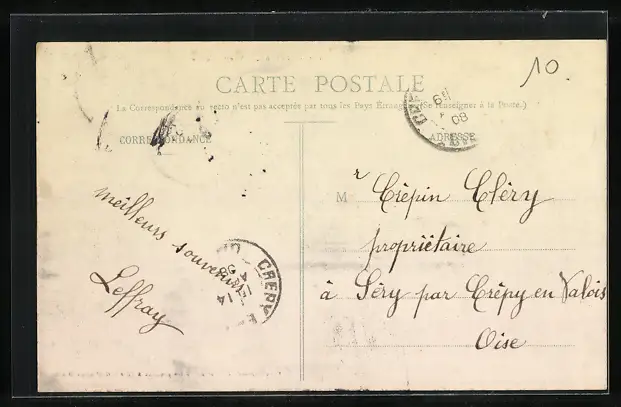 10.
CARTE POSTALE
La Correspondance au recto n'est pas acceptée par tous les Pays Étrangers (Se Renseigner à la Poste.)
CORRESPONDANCE
ADRESSE
meilleurs souvenirs
Leffray
CREPY
14
08
Mr Crépin Cléry
propriétaire
à Séry par Crépy en Valois
Oise